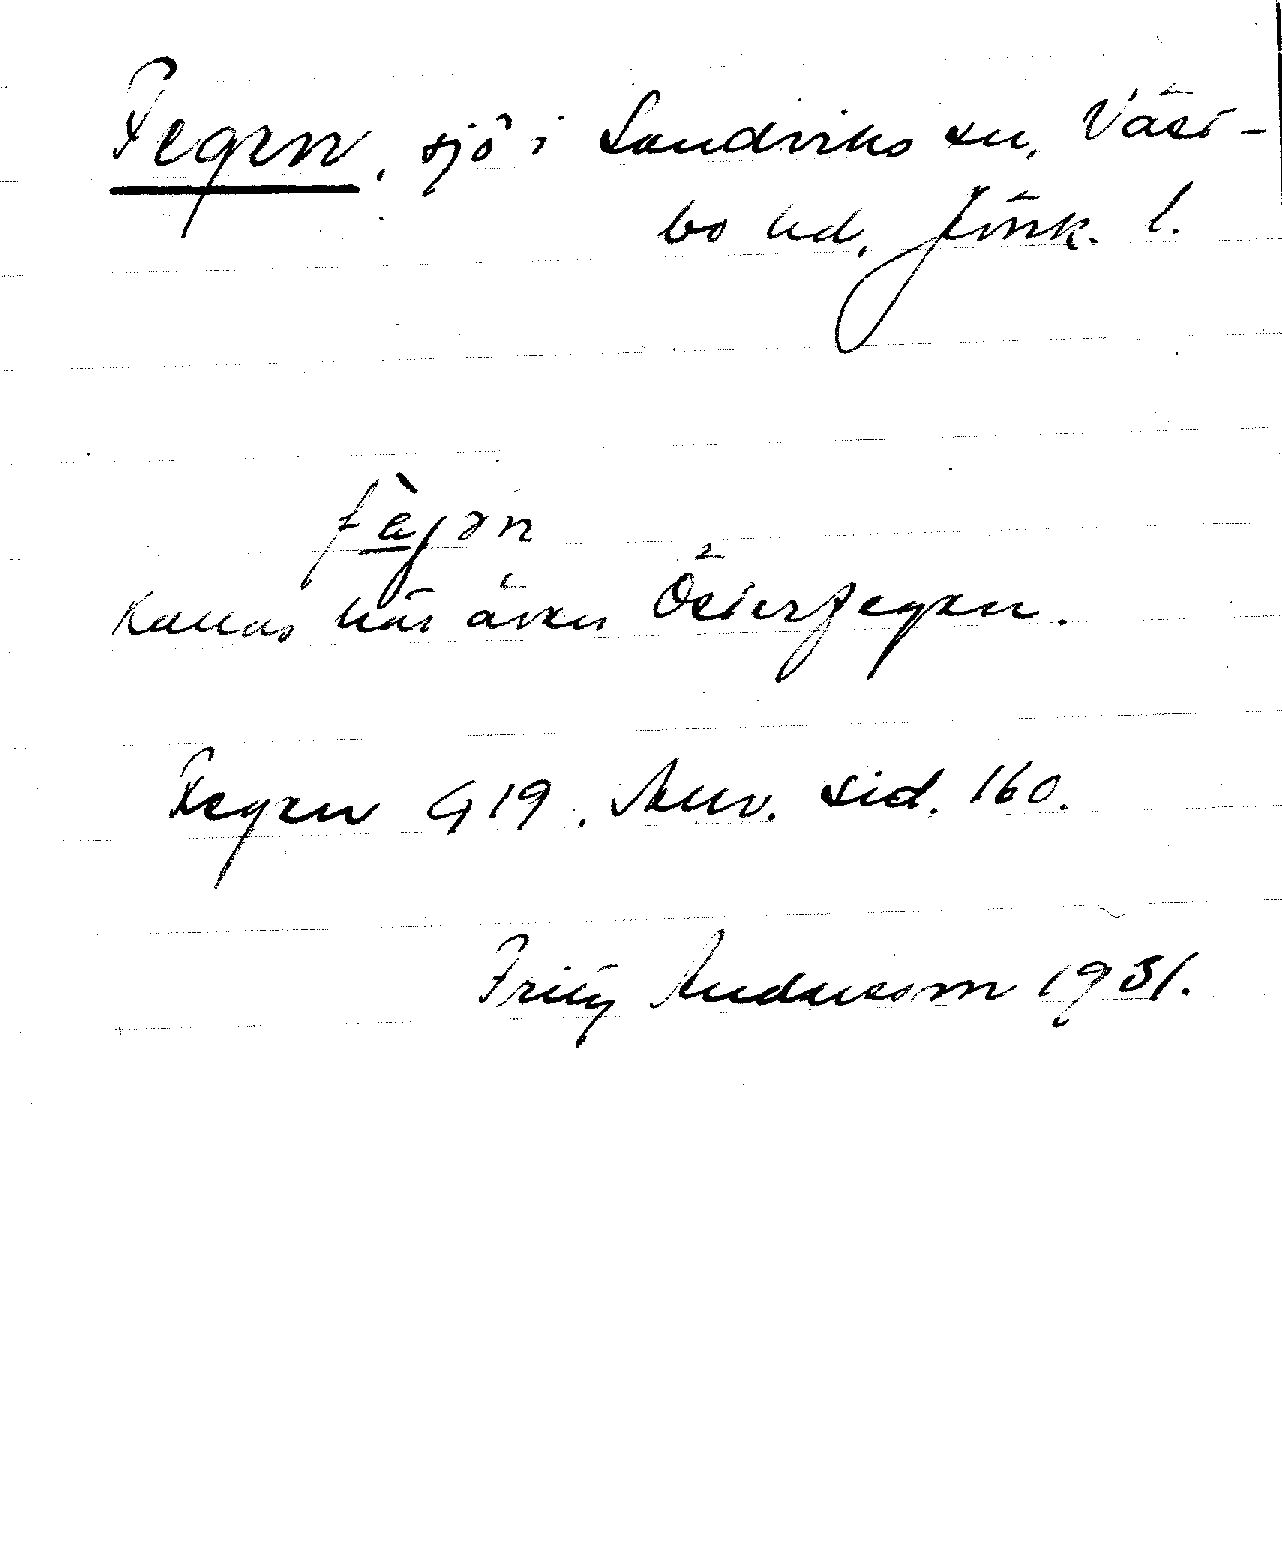 Fegen, sjö i Sandviks sn, Väst-
bo hd, Jönk. l.
fèjən
Kallas här även Österfegen.
Fegen G 19. Anv. sid. 160.
Fritz Andersson 1931.